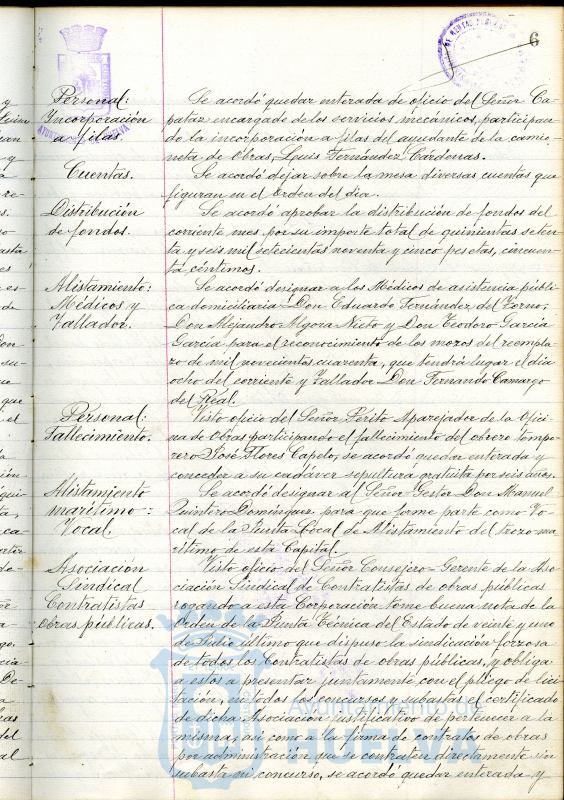 6
Personal:
Yncorporación
a filas
Se acordó quedar enterada de oficio del Señor Ca-
pataz encargado de los servicios mecánicos, participan-
do la incorporación a filas del ayudante de la camio-
neta de Obras, Luis Fernández Cárdenas.
Cuentas.
Se acordó dejar sobre la mesa diversas cuentas que
figuran en el Orden del dia.
Distribución
de fondos.
Se acordó aprobar la distribución de fondos del
corriente mes por su importe total de quinientas seten-
ta y seis mil setecientas noventa y cinco pesetas, cincuen-
ta céntimos.
Alistamiento:
Médicos y
Tallador.
Se acordó designar a los Médicos de asistencia públi-
ca domiciliaria Don Eduardo Fernández del Torno,
Don Alejandro Algora Nieto y Don Teodoro García
García para el reconocimiento de los mozos del reempla-
zo de mil novecientos cuarenta, que tendrá lugar el dia
ocho del corriente y Tallador Don Fernando Camargo
del Real.
Personal:
Fallecimiento.
Visto oficio del Señor Périto Aparejador de la Ofici-
na de Obras participando el fallecimiento del obrero tempo-
rero José Flores Capelo, se acordó quedar enterada y
conceder a su cadáver sepultura gratuita por seis años.
Alistamiento
marítimo:
Vocal.
Se acordó designar al Señor Gestor Don Manuel
Quintero Domínguez para que forme parte como Vo-
cal de la Junta Local de Alistamiento del trozo ma-
rítimo de esta Capital.
Asociación
Sindical
Contratistas
obras públicas.
Visto oficio del Señor Consejero-Gerente de la Aso-
ciación Sindical de Contratistas de obras públicas
rogando a esta Corporación tome buena nota de la
Orden de la Junta Técnica del Estado de veinte y uno
de Julio último que dispuso la sindicación forzosa
de todos los Contratistas de obras públicas, y obliga
a estos a presentar juntamente con el pliego de lici-
tación, en todos los concursos y subastas el certificado
de dicha Asociación justificativo de pertenecer a la
misma, así como a la firma de contratos de obras
por administración que se contraten directamente sin
subasta ni concurso, se acordó quedar enterada y
Ayuntamiento de
HUELVA